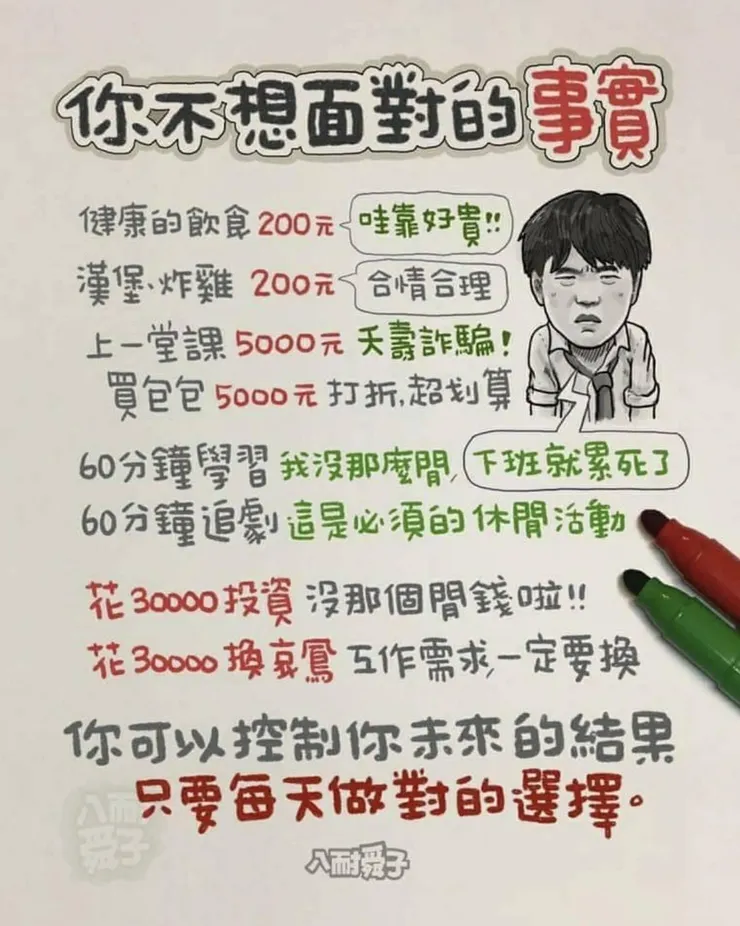 你不想面對的事實
健康的飲食 200元 哇靠好貴!!
漢堡、炸雞 200元 合情合理
上一堂課 5000元 夭壽詐騙!
買包包 5000元 打折,超划算
60分鐘學習 我沒那麼閒, 下班就累死了
60分鐘追劇 這是必須的休閒活動
花30000投資 沒那個閒錢啦!!
花30000換哀鳳 工作需求,一定要換
你可以控制你未來的結果
只要每天做對的選擇。
八耐舜子
八耐舜子